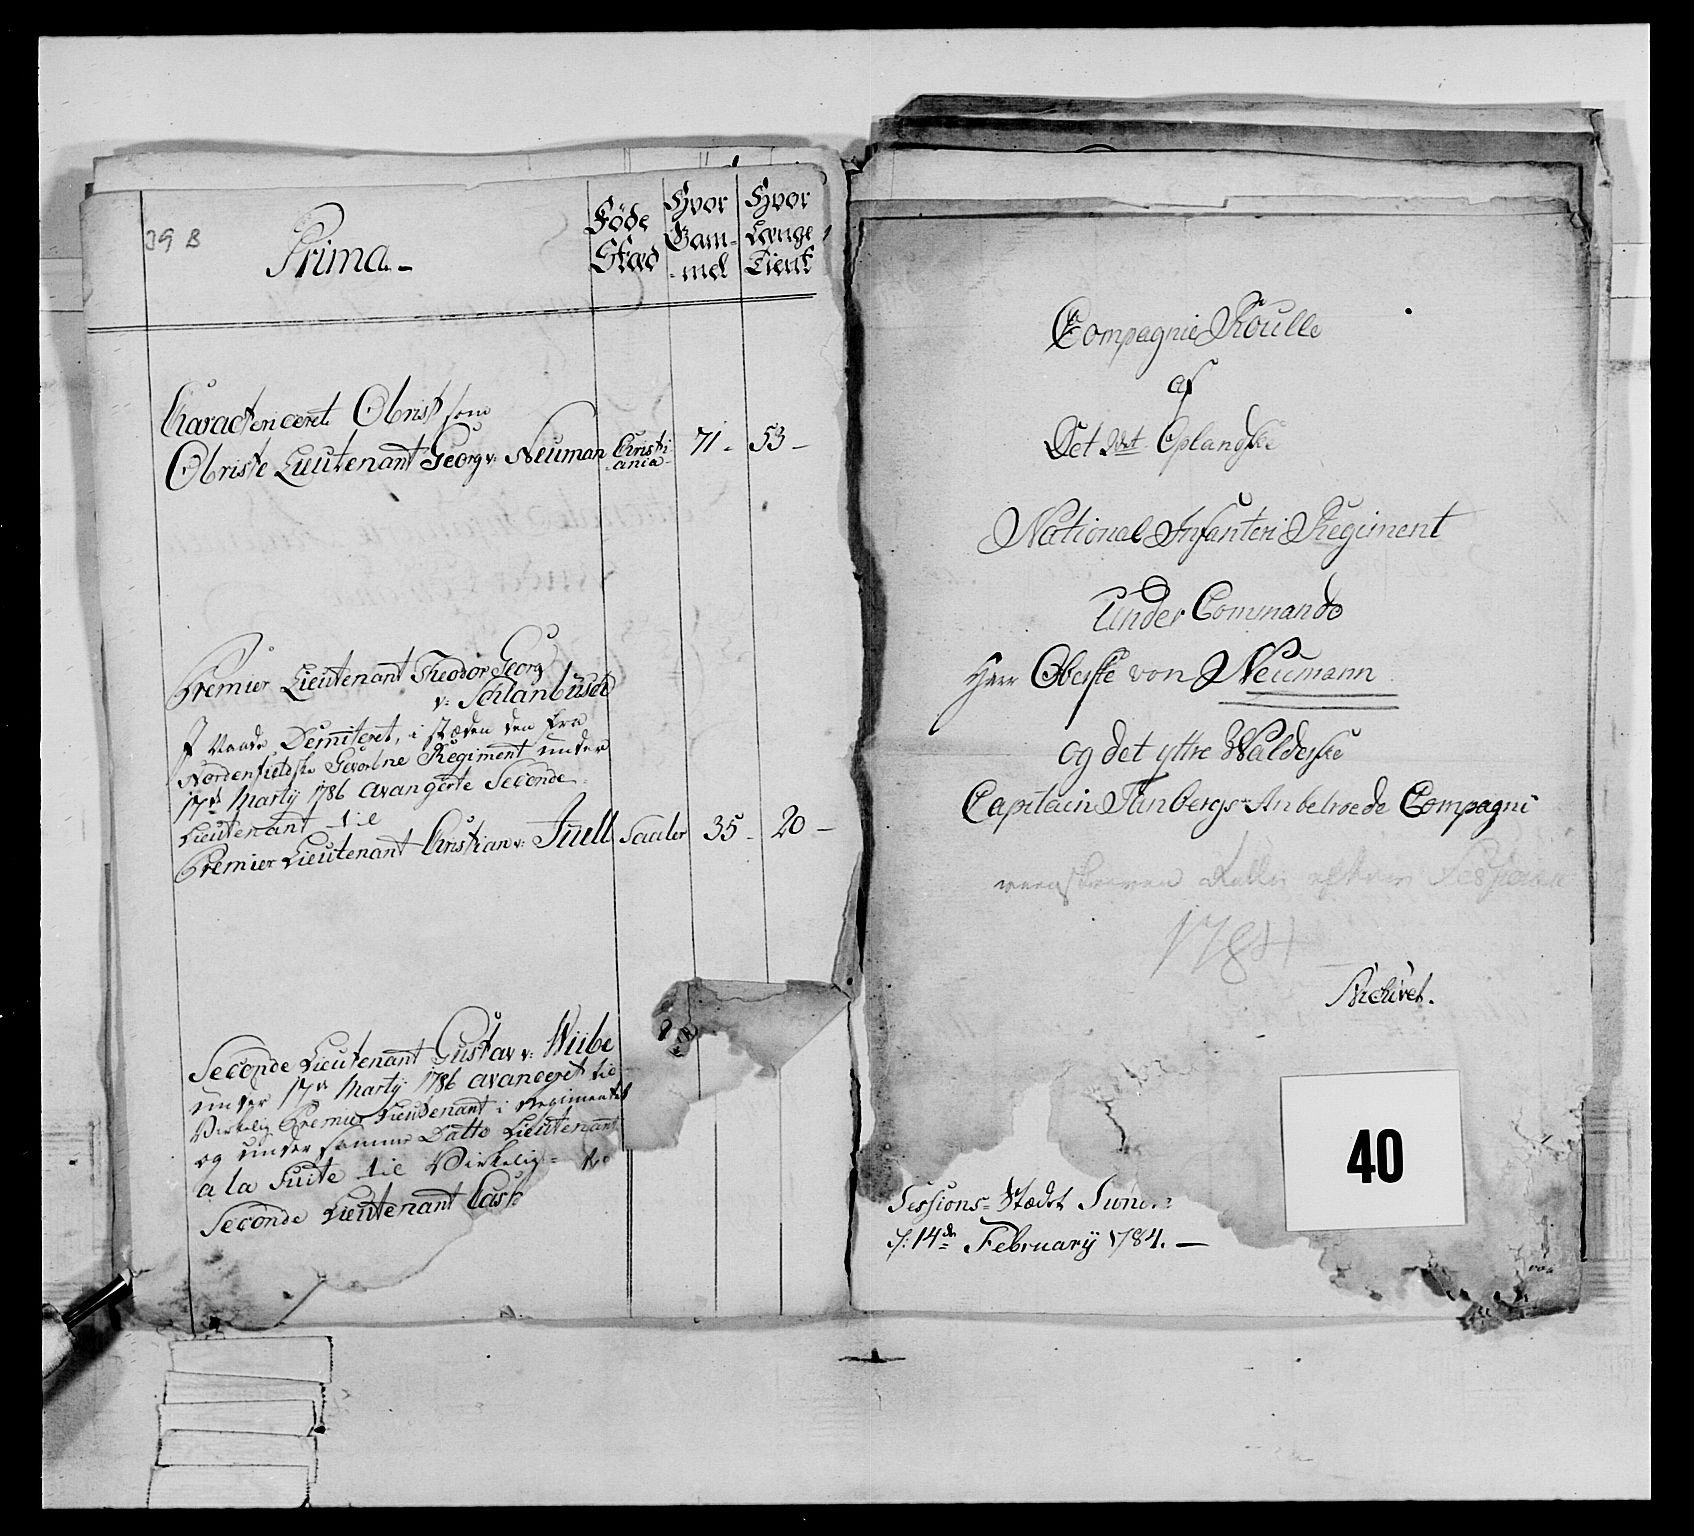 39 B
Prima.-
Föde
Stæd
Hvor
Gam-
-mel
Hvor
Længe
Tient
Characteriseret Obrist som
Obriste Lieutenant Georg v: Neuman Christi-
-ania- 71- 53-
Premier Lieutenant Theodor Georg
v: Schlanbüsch
Naade Demiteret, i stæden den fra
Nordenfieldske Gevorbne Regiment under
17de Martÿ 1786 avangerte Seconde
Lieutenant til
Premier Lieutenant Christian v: Juell Saaler 35- 20-
Seconde Lieutenant Gustav v: Wiibe
under 17de Martÿ 1786 avanceret til
Virkelig Premier Lieutenant i Regimentet
og under samme Datto Lieutenant
a la Suite til Virkelig
Seconde Lieutenant
Compagnie Roulle
af
Det 2det Oplangske
National Infanteri Regiment
Under Commando
Herr Oberste von Neumann
og det yttre Walderske
Capitain Anbetroede Compagni
1784
Archivet.
40
Sessions-Stædet
d: 14de Februarÿ 1784.-